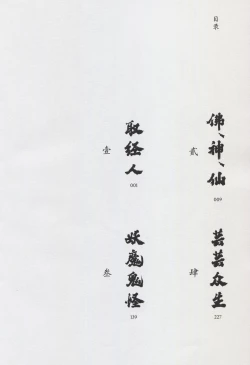 目录
壹
取经人
001
贰
佛、神、仙
叁
妖魔鬼怪
肆
芸芸众生
227